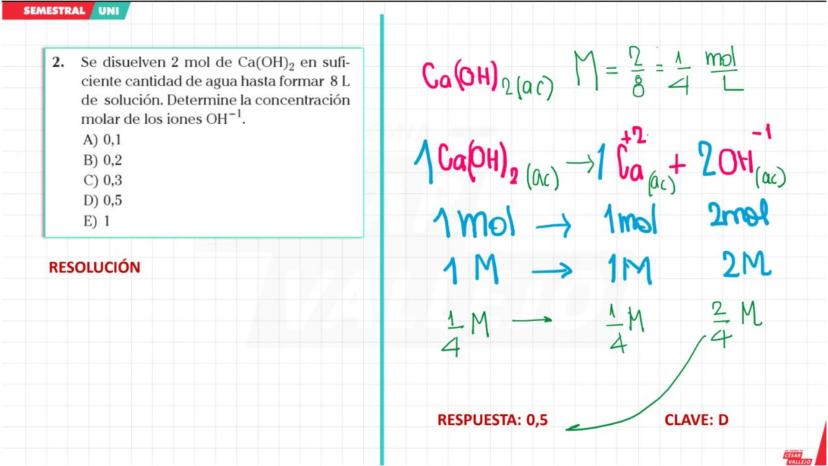 SEMESTRAL UNI
2. Se disuelven 2 mol de Ca(OH)₂ en sufi-
ciente cantidad de agua hasta formar 8 L
de solución. Determine la concentración
molar de los iones OH⁻¹.
A) 0,1
B) 0,2
C) 0,3
D) 0,5
E) 1
RESOLUCIÓN
Ca(OH)₂(ac) M = 2/8 = 1/4 mol/L
1Ca(OH)₂(ac) → 1Ca⁺²(ac) + 2OH⁻¹(ac)
1mol → 1mol 2mol
1M → 1M 2M
1/4 M → 1/4 M 2/4 M
RESPUESTA: 0,5 CLAVE: D
CÉSAR
VALLEJO